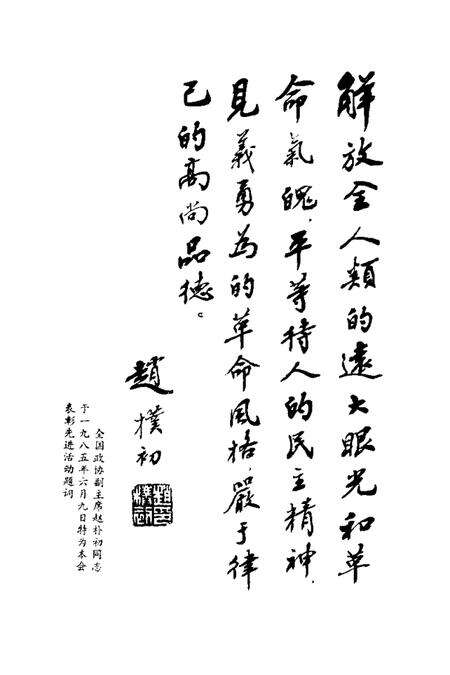 解放全人類的遠大眼光和革
命氣魄，平等待人的民主精神，
見義勇為的革命風格，嚴于律
己的高尚品德。
趙樸初
全国政协副主席赵朴初同志
于一九八五年六月九日特为本会
表彰先进活动题词